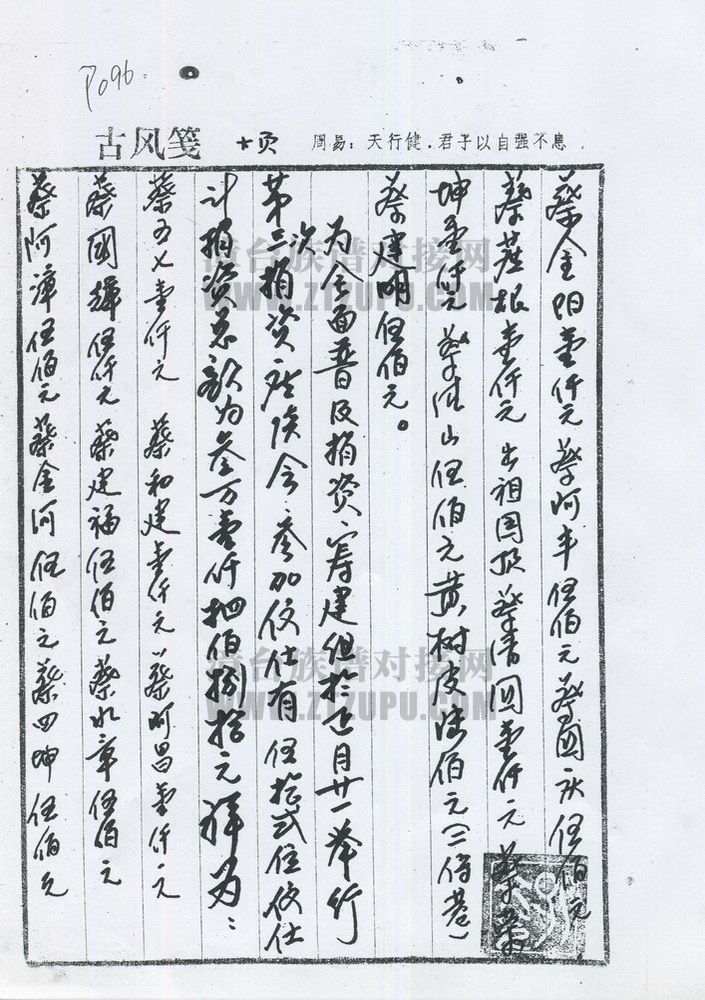 P096
古风笺 十页 周易：天行健.君子以自强不息.
蔡金阳壹仟元 蔡阿丰伍佰元 蔡國永伍佰元
蔡蔗根壹仟元 出祖国 蔡清圆壹仟元 蔡荣
坤壹仟元 蔡 山伍佰元 黄树皮陆佰元（二
蔡建明伍佰元。
为全面普及捐资、筹建组於七月廿一举行
第二次捐资座谈会、参加 有伍拾弍位
计捐资总额为叁万壹仟肆佰捌拾元 祥为：
蔡五七壹仟元 蔡和建壹仟元 蔡阿昌壹仟元
蔡國輝伍仟元 蔡建福伍佰元 蔡水章伍佰元
蔡阿漳伍佰元 蔡金河伍佰元 蔡四坤伍佰元
滑台族谱对接网
WWW.ZTZUPU.COM
滑台族谱对接网
WWW.ZTZUPU.COM